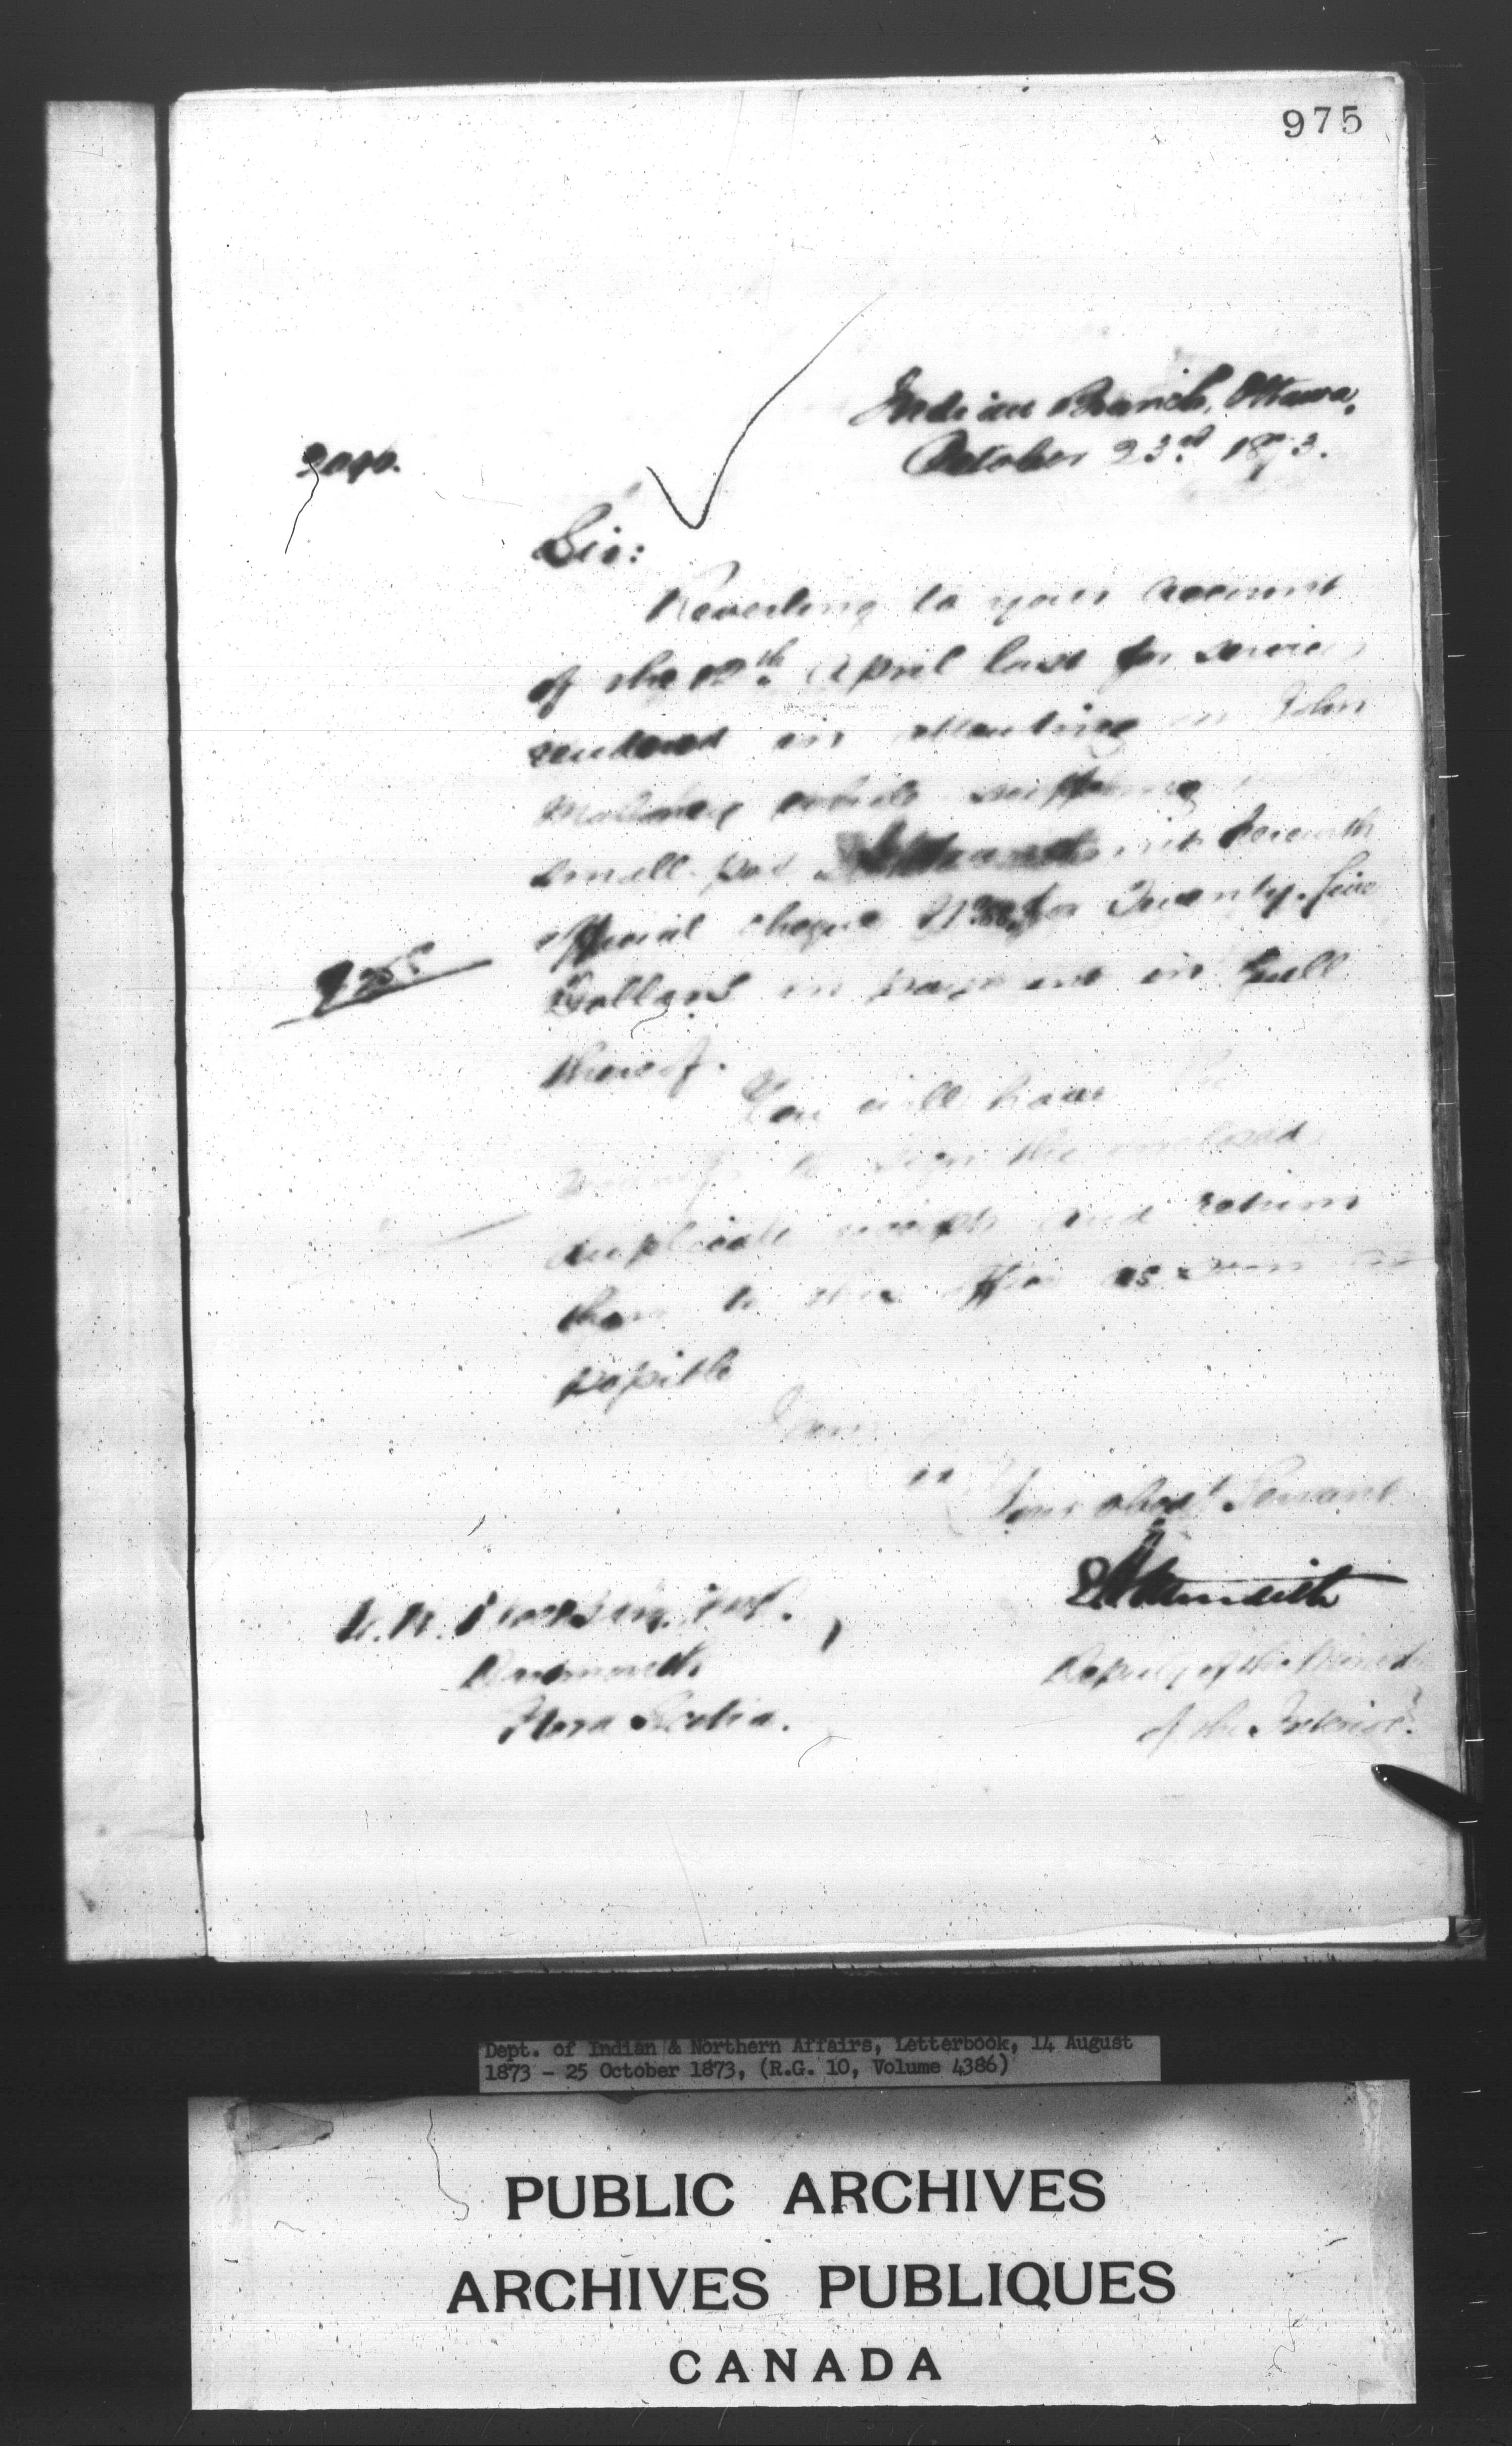 975
Indian Branch, Ottawa,
October 23rd 1873.
Sir:
Reverting to your account
of the 12th April last for services
rendered in attending on John
while suffering
small-pox I transmit herewith
official cheque No for Twenty-five
Dollars in payment in full
thereof.
You will have the
to sign the enclosed
duplicate receipts and return
them to this office as soon as
possible
I am
Sir
Your obedt Servant
E A Meredith
Deputy of the Minister
of the Interior.
Dartmouth
Nova Scotia.
Dept. of Indian & Northern Affairs, Letterbook, 14 August
1873 - 25 October 1873, (R.G. 10, Volume 4386)
PUBLIC ARCHIVES
ARCHIVES PUBLIQUES
CANADA